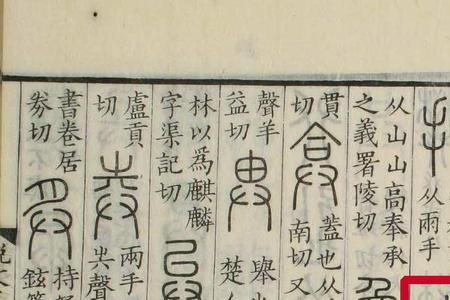 从兩手
从山山高奉承
之義署陵切
貫
切
蓋也从
南切又
聲羊
益切
舉
楚人
林以爲麒麟
字渠記切
盧貢
切
兩手
聲
書卷居
券切
持弩
鉉等